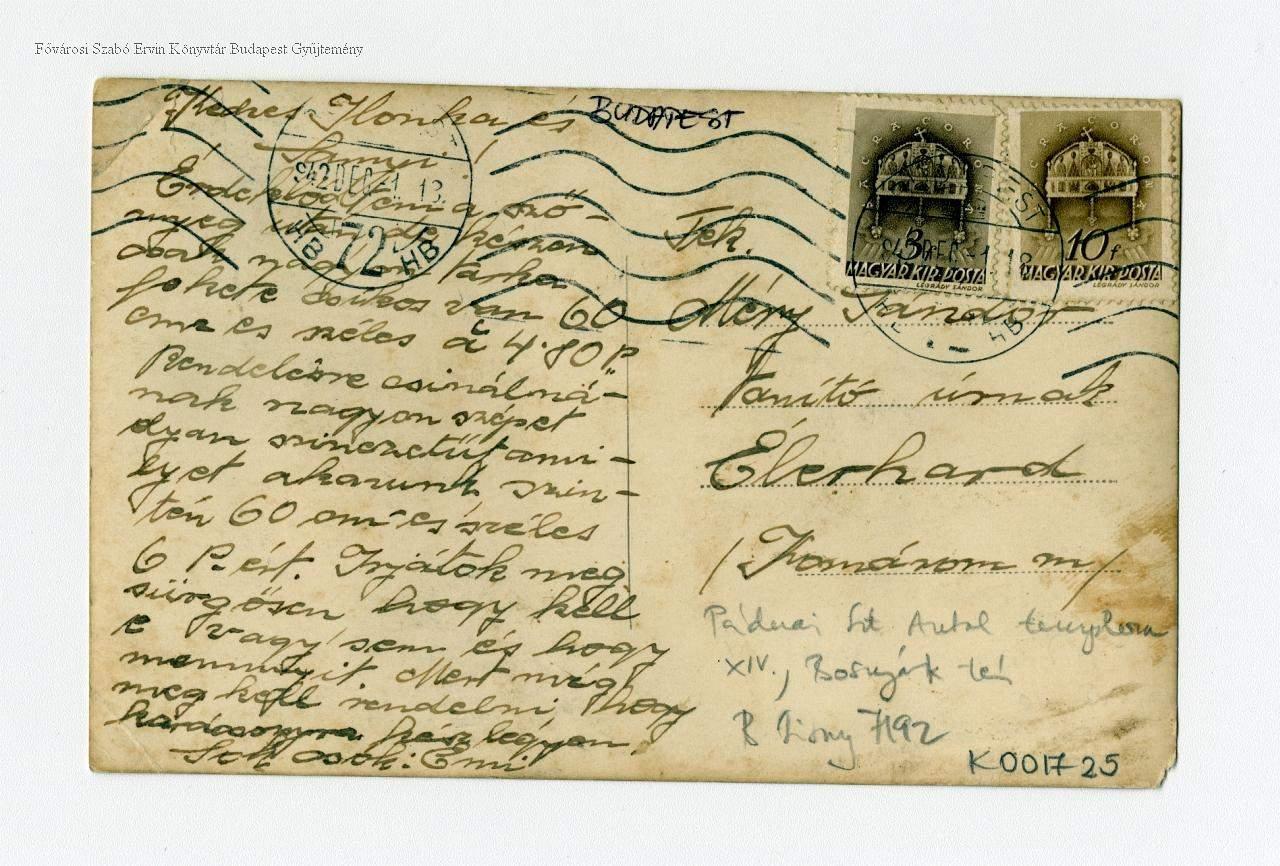 Fővárosi Szabó Ervin Könyvtár Budapest Gyűjtemény
Kedves Ilonka és
Sanyi!
Érdeklődtem a sző-
nyeg után de készen
csak nagyon tarka
fekete csikos van 60
cm és széles à 4.80 P.
Rendelésre csinálná-
nak nagyon szépet
olyan szinezetűt ami-
lyet akarunk szin-
tén 60 cm és széles
6 P.-ért. Irjátok meg
sürgősen hogy kell
e vagy sem és hogy
mennyit Mert még
meg kell rendelni, hogy
karácsonyra kész légyen.
Sok csók: Emi
BUDAPEST
942 DEC -1 18
HB 72 HB
3f
MAGYAR KIR. POSTA
LÉGRÁDY SÁNDOR
10f
MAGYAR KIR. POSTA
LÉGRÁDY SÁNDOR
Tek.
Méry Sándor
tanító úrnak
Éberhard
/Komárom m/
Páduai Szt Antal templom
XIV., Bosnyák tér
7192
K001725